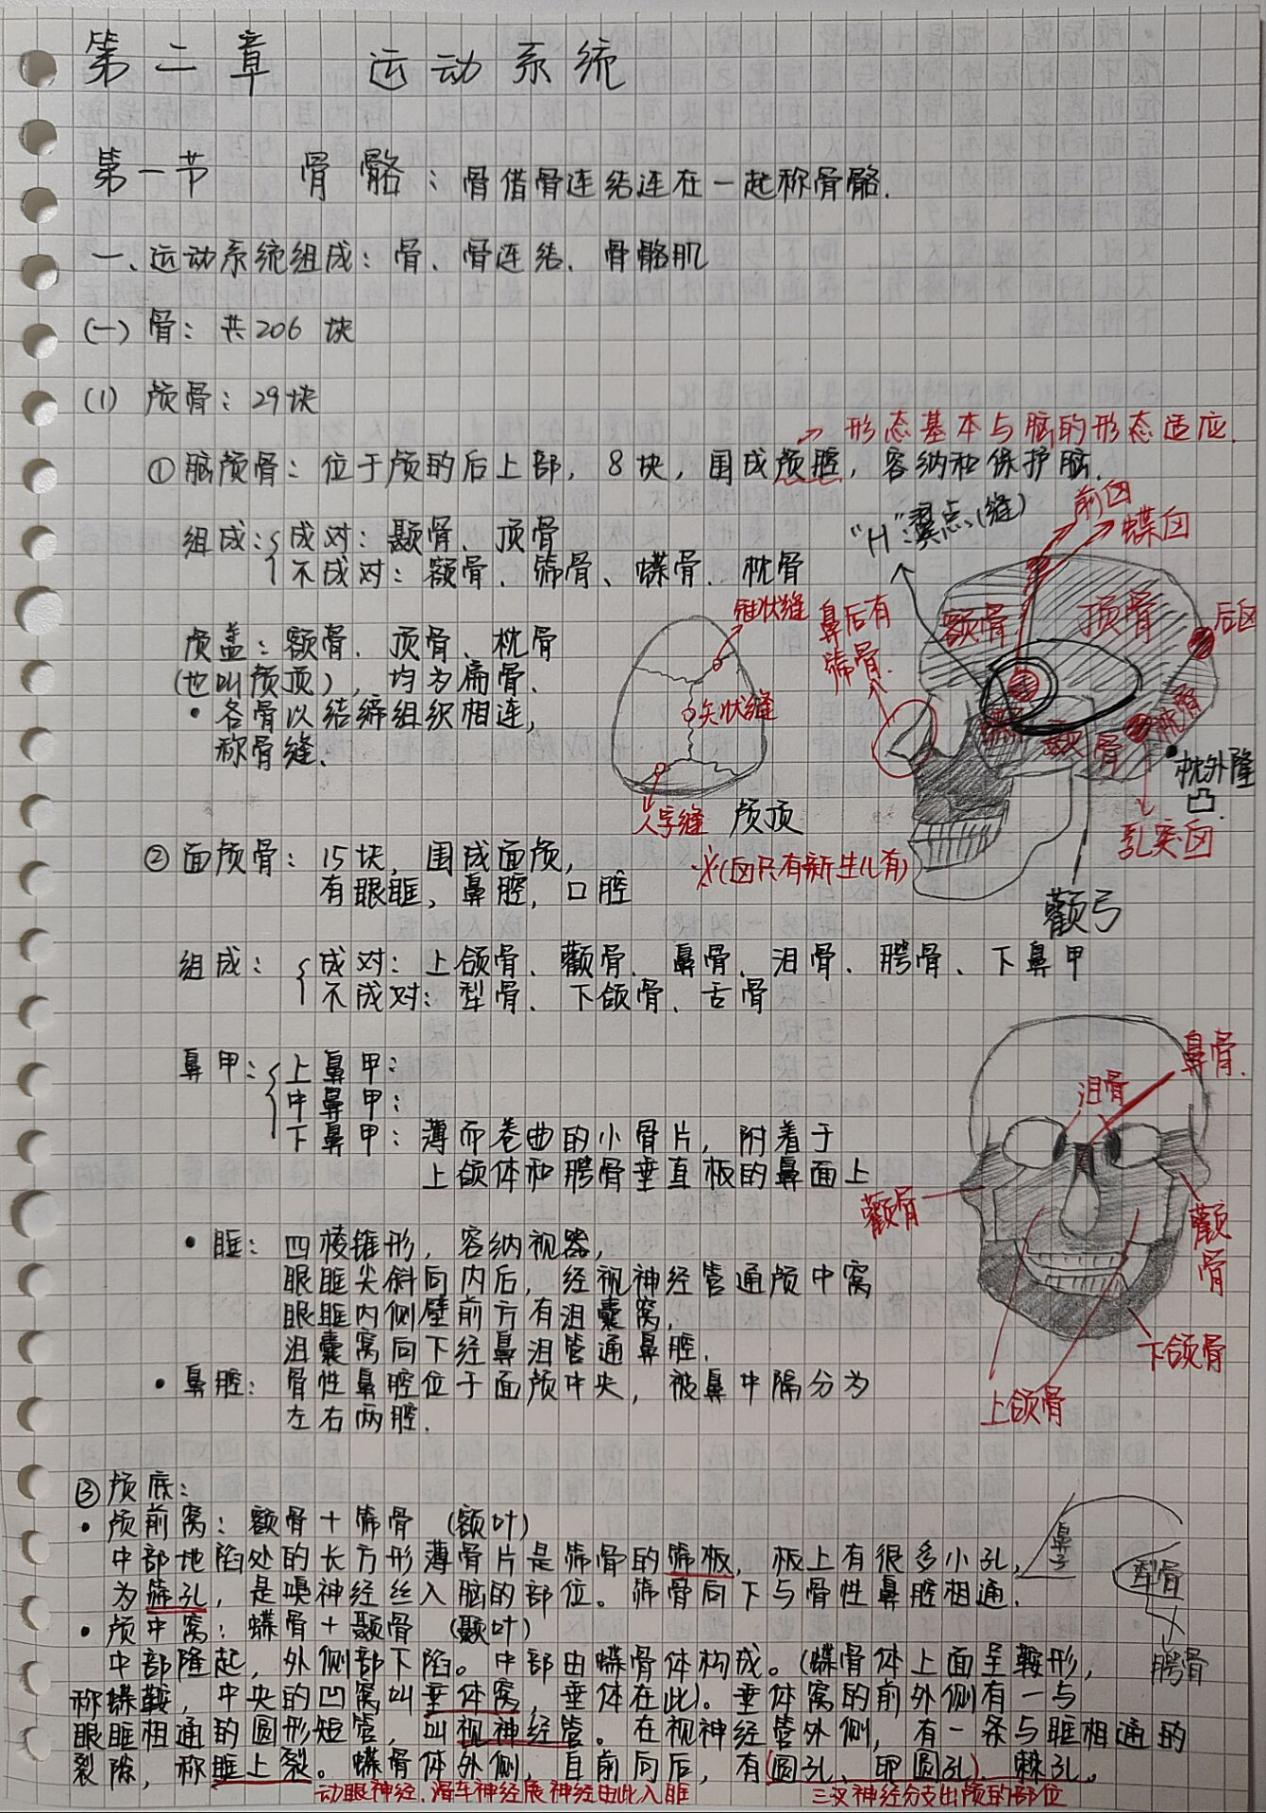 第二章 运动系统
第一节 骨骼：骨借骨连结连在一起称骨骼.
一、运动系统组成：骨、骨连结、骨骼肌
(一)骨：共206块
(1) 颅骨：29块
→形态基本与脑的形态适应.
①脑颅骨：位于颅的后上部，8块，围成颅腔，容纳和保护脑.
组成：成对：颞骨、顶骨
不成对：额骨、筛骨、蝶骨、枕骨
"H":翼点(缝)
前囟
蝶囟
后囟
额骨
顶骨
鼻后有
筛骨.
蝶骨
颞骨
枕骨
枕外隆
凸.
乳突囟
颧弓
颅盖：额骨、顶骨、枕骨
(也叫颅顶)，均为扁骨.
•各骨以结缔组织相连，
称骨缝.
冠状缝
矢状缝
人字缝
颅顶
※(囟只有新生儿有)
②面颅骨：15块，围成面颅，
有眼眶，鼻腔，口腔
组成：成对：上颌骨、颧骨、鼻骨、泪骨、腭骨、下鼻甲
不成对：犁骨、下颌骨、舌骨
鼻甲：上鼻甲：
中鼻甲：
下鼻甲：薄而卷曲的小骨片，附着于
上颌体和腭骨垂直板的鼻面上
鼻骨.
泪骨
颧骨
颧骨
下颌骨
上颌骨
•眶：四棱锥形，容纳视器，
眼眶尖斜向内后，经视神经管通颅中窝
眼眶内侧壁前方有泪囊窝，
泪囊窝向下经鼻泪管通鼻腔.
•鼻腔：骨性鼻腔位于面颅中央，被鼻中隔分为
左右两腔.
③颅底：
•颅前窝：额骨+筛骨 (额叶)
中部地陷处的长方形薄骨片是筛骨的筛板，板上有很多小孔，
为筛孔，是嗅神经丝入脑的部位。筛骨向下与骨性鼻腔相通.
鼻子
犁骨
腭骨
•颅中窝：蝶骨+颞骨 (颞叶)
中部隆起，外侧部下陷。中部由蝶骨体构成。(蝶骨体上面呈鞍形，
称蝶鞍，中央的凹窝叫垂体窝，垂体在此)。垂体窝的前外侧有一与
眼眶相通的圆形短管，叫视神经管。在视神经管外侧，有一条与眶相通的
裂隙，称眶上裂。蝶骨体外侧，自前向后，有(圆孔、卵圆孔)、棘孔。
动眼神经、滑车神经展神经由此入眶
三叉神经分支出颅的部位